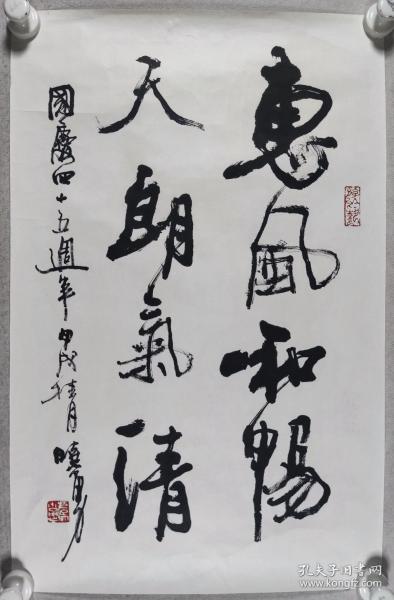 惠風和暢
天朗氣清
國慶四十五週年 甲戌桂月 曉勇
孔夫子旧书网
www.kongfz.com